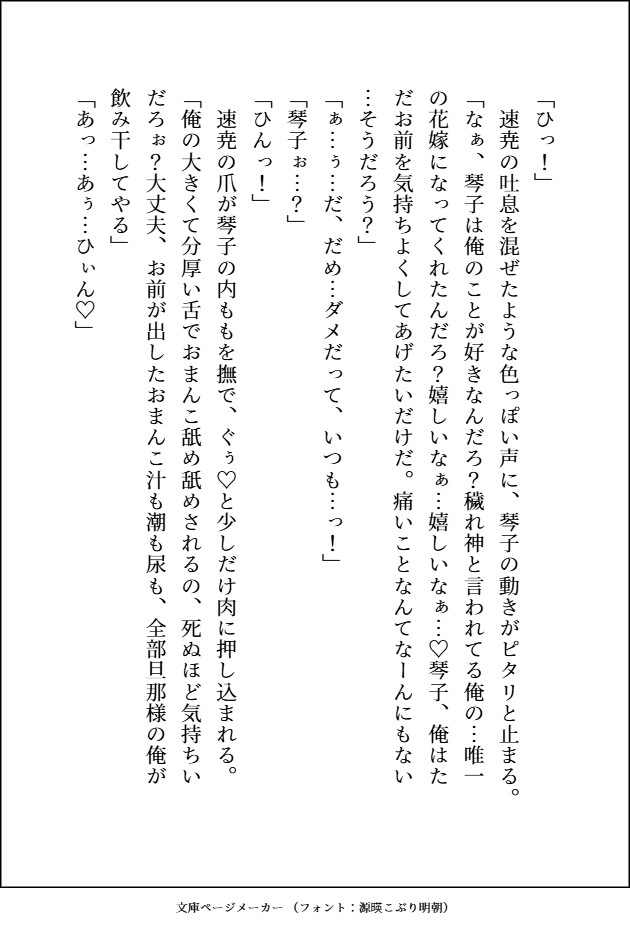 「ひっ！」
　速尭の吐息を混ぜたような色っぽい声に、琴子の動きがピタリと止まる。
「なぁ、琴子は俺のことが好きなんだろ？穢れ神と言われてる俺の…唯一
の花嫁になってくれたんだろ？嬉しいなぁ…嬉しいなぁ…♡琴子、俺はた
だお前を気持ちよくしてあげたいだけだ。痛いことなんてなーんにもない
…そうだろう？」
「ぁ…ぅ…だ、だめ…ダメだって、いつも…っ！」
「琴子ぉ…？」
「ひんっ！」
　速尭の爪が琴子の内ももを撫で、ぐぅ♡と少しだけ肉に押し込まれる。
「俺の大きくて分厚い舌でおまんこ舐め舐めされるの、死ぬほど気持ちい
だろぉ？大丈夫、お前が出したおまんこ汁も潮も尿も、全部旦那様の俺が
飲み干してやる」
「あっ…あぅ…ひぃん♡」
文庫ページメーカー （フォント：源暎こぶり明朝）